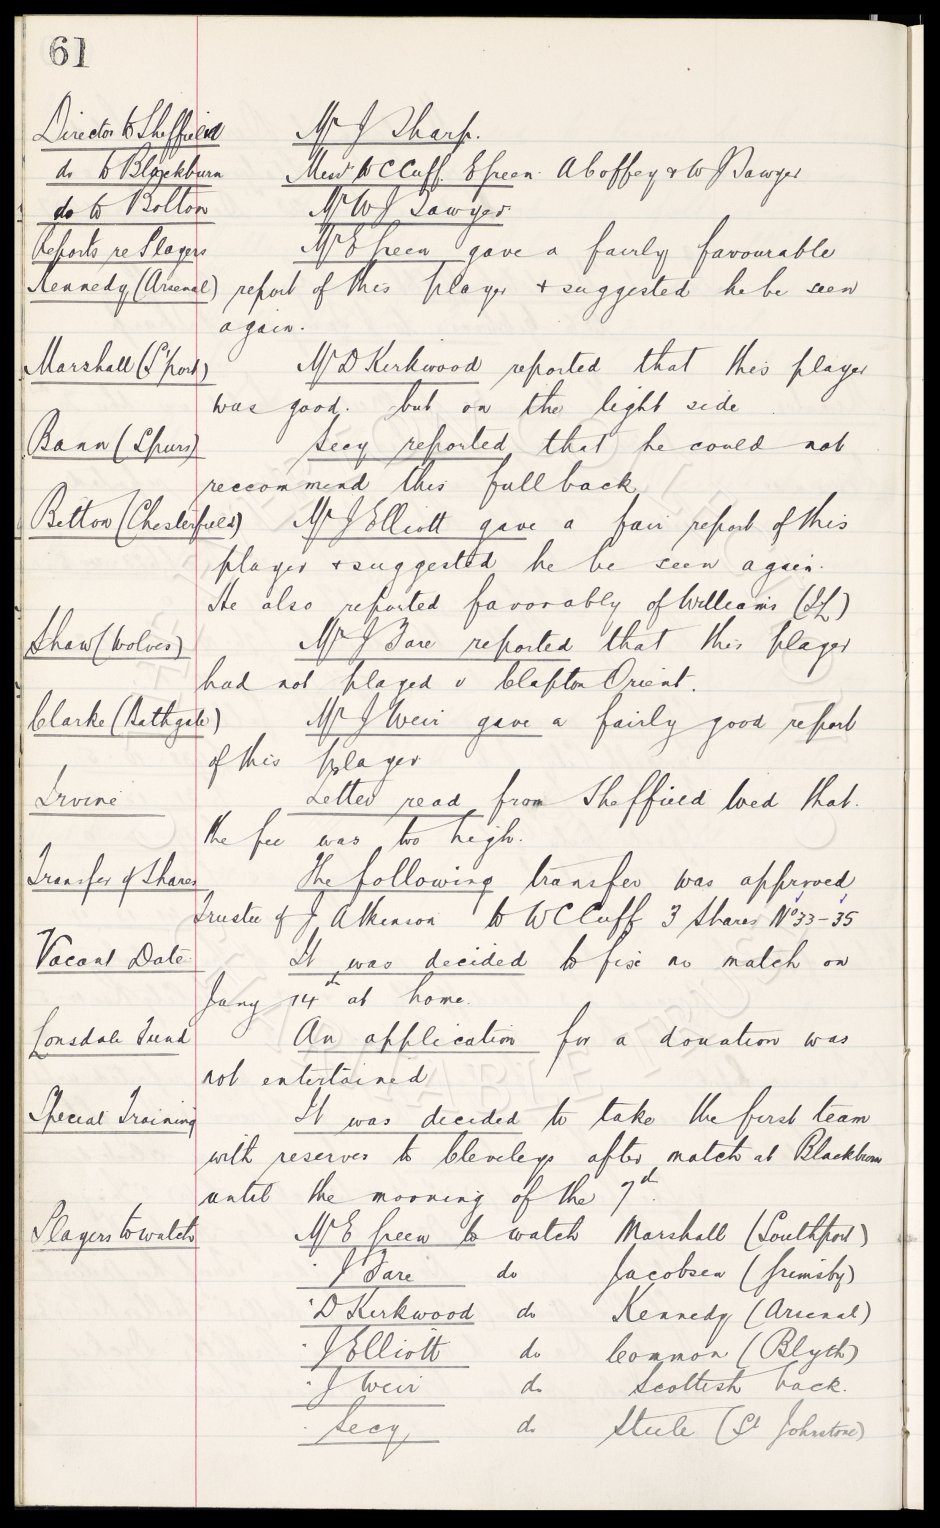 61
Director to Sheffield Mr J Sharp.
do to Blackburn Messrs W C Cuff. E Green. A Coffey & W J Sawyer
do to Bolton Mr W J Sawyer.
Reports re Players Mr E Green gave a fairly favourable
Kennedy (Arsenal) report of this player & suggested he be seen
again.
Marshall (S'port) Mr D Kirkwood reported that this player
was good. but on the light side
Bann (Spurs) Secy reported that he could not
reccommend this full back
Betton (Chesterfield) Mr J Elliott gave a fair report of this
player & suggested he be seen again.
He also reported favorably of Williams
Shaw (Wolves) Mr J Fare reported that this player
had not played v Clapton Orient.
Clarke (Bathgate) Mr J Weir gave a fairly good report
of this player
Irvine Letter read from Sheffield Wed that.
the fee was too high.
Transfer of Shares The following transfer was approved
Trustee of J Atkinson to W C Cuff 3 Shares No 33-35
Vacant Date It was decided to fix no match on
Jany 14th at home.
Lonsdale Fund An application for a donation was
not entertained
Special Training It was decided to take the first team
with reserves to Cleveleys after match at Blackburn
until the morning of the 7th.
Players to watch Mr E Green to watch Marshall (Southport)
" J Fare do Jacobsen (Grimsby)
" D Kirkwood do Kennedy (Arsenal)
" J Elliott do Common (Blyth)
" J Weir do Scottish back.
" Secy do Steele (St Johnstone)